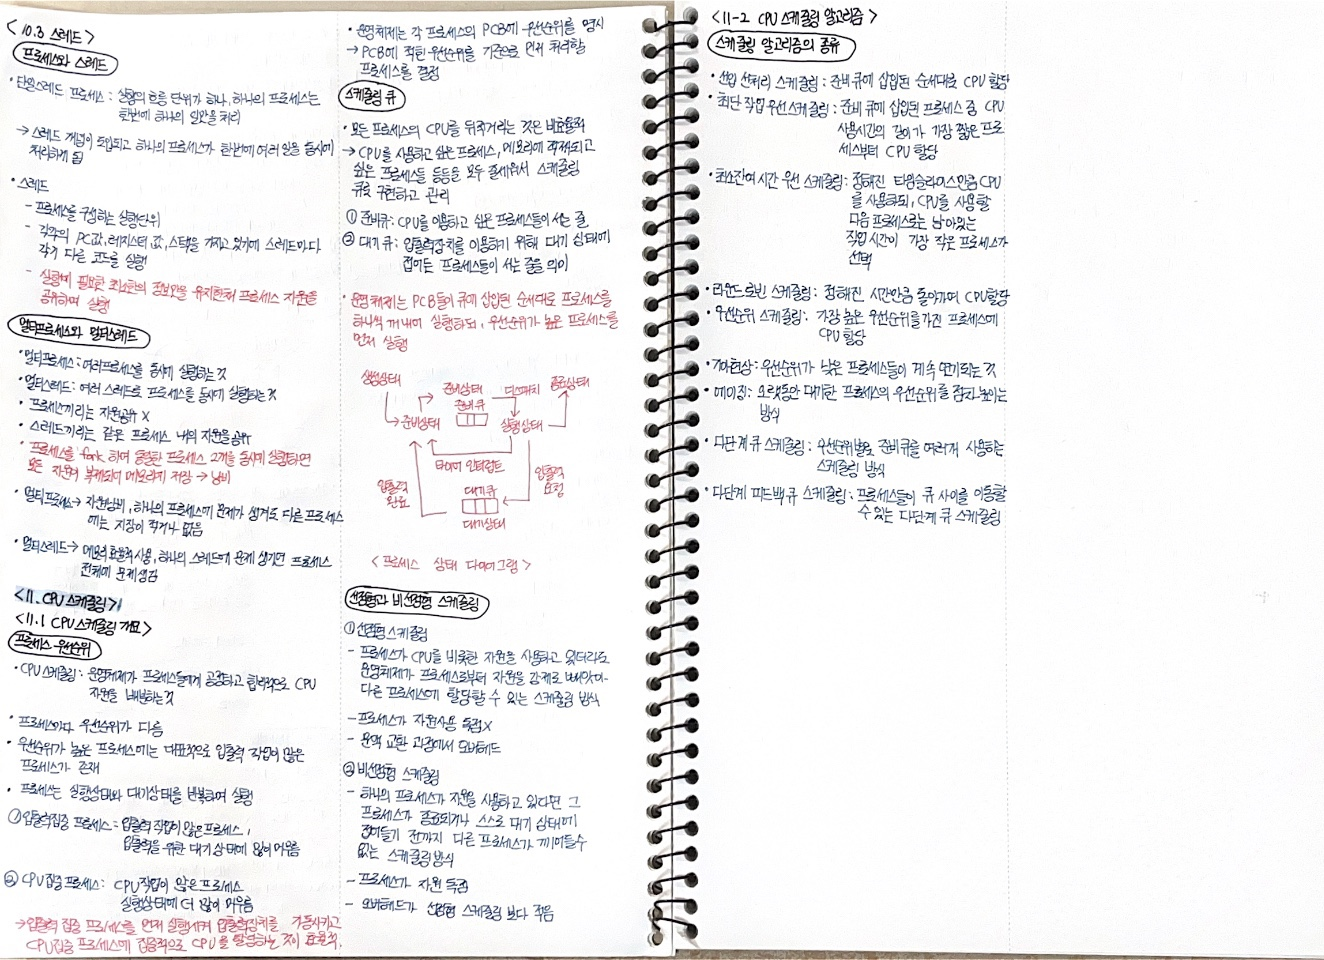 <10.3 스레드>
프로세스와 스레드
· 단일스레드 프로세스 : 실행의 흐름 단위가 하나, 하나의 프로세스는
한번에 하나의 일만을 처리
→ 스레드 개념이 도입되고 하나의 프로세스가 한번에 여러 일을 동시에
처리하게 됨
· 스레드
- 프로세스를 구성하는 실행단위
- 각각의 PC값, 레지스터 값, 스택을 가지고 있기에 스레드마다
각기 다른 코드를 실행
- 실행에 필요한 최소한의 정보만을 유지한채 프로세스 자원을
공유하며 실행
멀티프로세스와 멀티스레드
· 멀티프로세스 : 여러프로세스를 동시에 실행하는 것
· 멀티스레드 : 여러 스레드로 프로세스를 동시에 실행하는 것
· 프로세스끼리는 자원공유 X
· 스레드끼리는 같은 프로세스 내의 자원을 공유
· 프로세스를 fork 하여 동일한 프로세스 2개를 동시에 실행하면
모든 자원이 복제되어 메모리에 저장 → 낭비
· 멀티프로세스 → 자원낭비, 하나의 프로세스에 문제가 생겨도 다른 프로세스
에는 지장이 적거나 없음
· 멀티스레드 → 메모리 효율적 사용, 하나의 스레드에 문제 생기면 프로세스
전체에 문제생김
<11. CPU 스케줄링>
<11.1 CPU 스케줄링 개요>
프로세스 우선순위
· CPU 스케줄링 : 운영체제가 프로세스들에게 공정하고 합리적으로 CPU
자원을 배분하는것
· 프로세스마다 우선순위가 다름
· 우선순위가 높은 프로세스에는 대표적으로 입출력 작업이 많은
프로세스가 존재
· 프로세스는 실행상태와 대기상태를 반복하며 실행
① 입출력집중 프로세스 : 입출력 작업이 많은프로세스,
입출력을 위한 대기 상태에 많이 머무름
② CPU 집중 프로세스 : CPU작업이 많은프로세스
실행상태에 더 많이 머무름
→ 입출력 집중 프로세스를 먼저 실행시켜 입출력장치를 가동시키고
CPU집중 프로세스에 집중적으로 CPU를 할당하는 것이 효율적.
· 운영체제는 각 프로세스의 PCB에 우선순위를 명시
→ PCB에 적힌 우선순위를 기준으로 먼저 처리할
프로세스를 결정
스케줄링 큐
· 모든 프로세스의 CPU를 뒤적거리는 것은 비효율적
→ CPU를 사용하고 싶은 프로세스, 메모리에 적재되고
싶은 프로세스들 등등을 모두 줄세워서 스케줄링
큐로 구현하고 관리
① 준비큐 : CPU를 이용하고 싶은 프로세스들이 서는 줄
② 대기 큐 : 입출력장치를 이용하기 위해 대기 상태에
접어든 프로세스들이 서는 줄을 의미
· 운영체제는 PCB들이 큐에 삽입된 순서대로 프로세스를
하나씩 꺼내어 실행하되, 우선순위가 높은 프로세스를
먼저 실행
생성상태
준비상태
준비 큐
디스패치
종료상태
준비상태
실행상태
타이머 인터럽트
입출력
완료
대기큐
대기상태
입출력
요청
<프로세스 상태 다이어그램>
선점형과 비선점형 스케줄링
① 선점형 스케줄링
- 프로세스가 CPU를 비롯한 자원을 사용하고 있더라도
운영체제가 프로세스로부터 자원을 강제로 빼앗아
다른 프로세스에 할당할 수 있는 스케줄링 방식
- 프로세스가 자원사용 독점X
- 문맥 교환 과정에서 오버헤드
② 비선점형 스케줄링
- 하나의 프로세스가 자원을 사용하고 있다면 그
프로세스가 종료되거나 스스로 대기 상태에
접어들기 전까지 다른 프로세스가 끼어들수
없는 스케줄링 방식
- 프로세스가 자원 독점
- 오버헤드가 선점형 스케줄링 보다 적음
<11-2 CPU 스케줄링 알고리즘>
스케줄링 알고리즘의 종류
· 선입 선처리 스케줄링 : 준비 큐에 삽입된 순서대로 CPU 할당
· 최단 작업 우선 스케줄링 : 준비 큐에 삽입된 프로세스 중, CPU
사용시간의 길이가 가장 짧은 프로
세스부터 CPU 할당
· 최소잔여 시간 우선 스케줄링 : 정해진 타임슬라이스만큼 CPU
를 사용하되, CPU를 사용할
다음 프로세스로는 남아있는
작업 시간이 가장 적은 프로세스가
선택
· 라운드 로빈 스케줄링 : 정해진 시간만큼 돌아가며 CPU할당
· 우선순위 스케줄링 : 가장 높은 우선순위를 가진 프로세스에
CPU 할당
· 기아현상 : 우선순위가 낮은 프로세스들이 계속 연기되는 것
· 에이징 : 오랫동안 대기한 프로세스의 우선순위를 점차 높이는
방식
· 다단계 큐 스케줄링 : 우선순위별로 준비큐를 여러개 사용하는
스케줄링 방식
· 다단계 피드백 큐 스케줄링 : 프로세스들이 큐 사이를 이동할
수 있는 다단계 큐 스케줄링